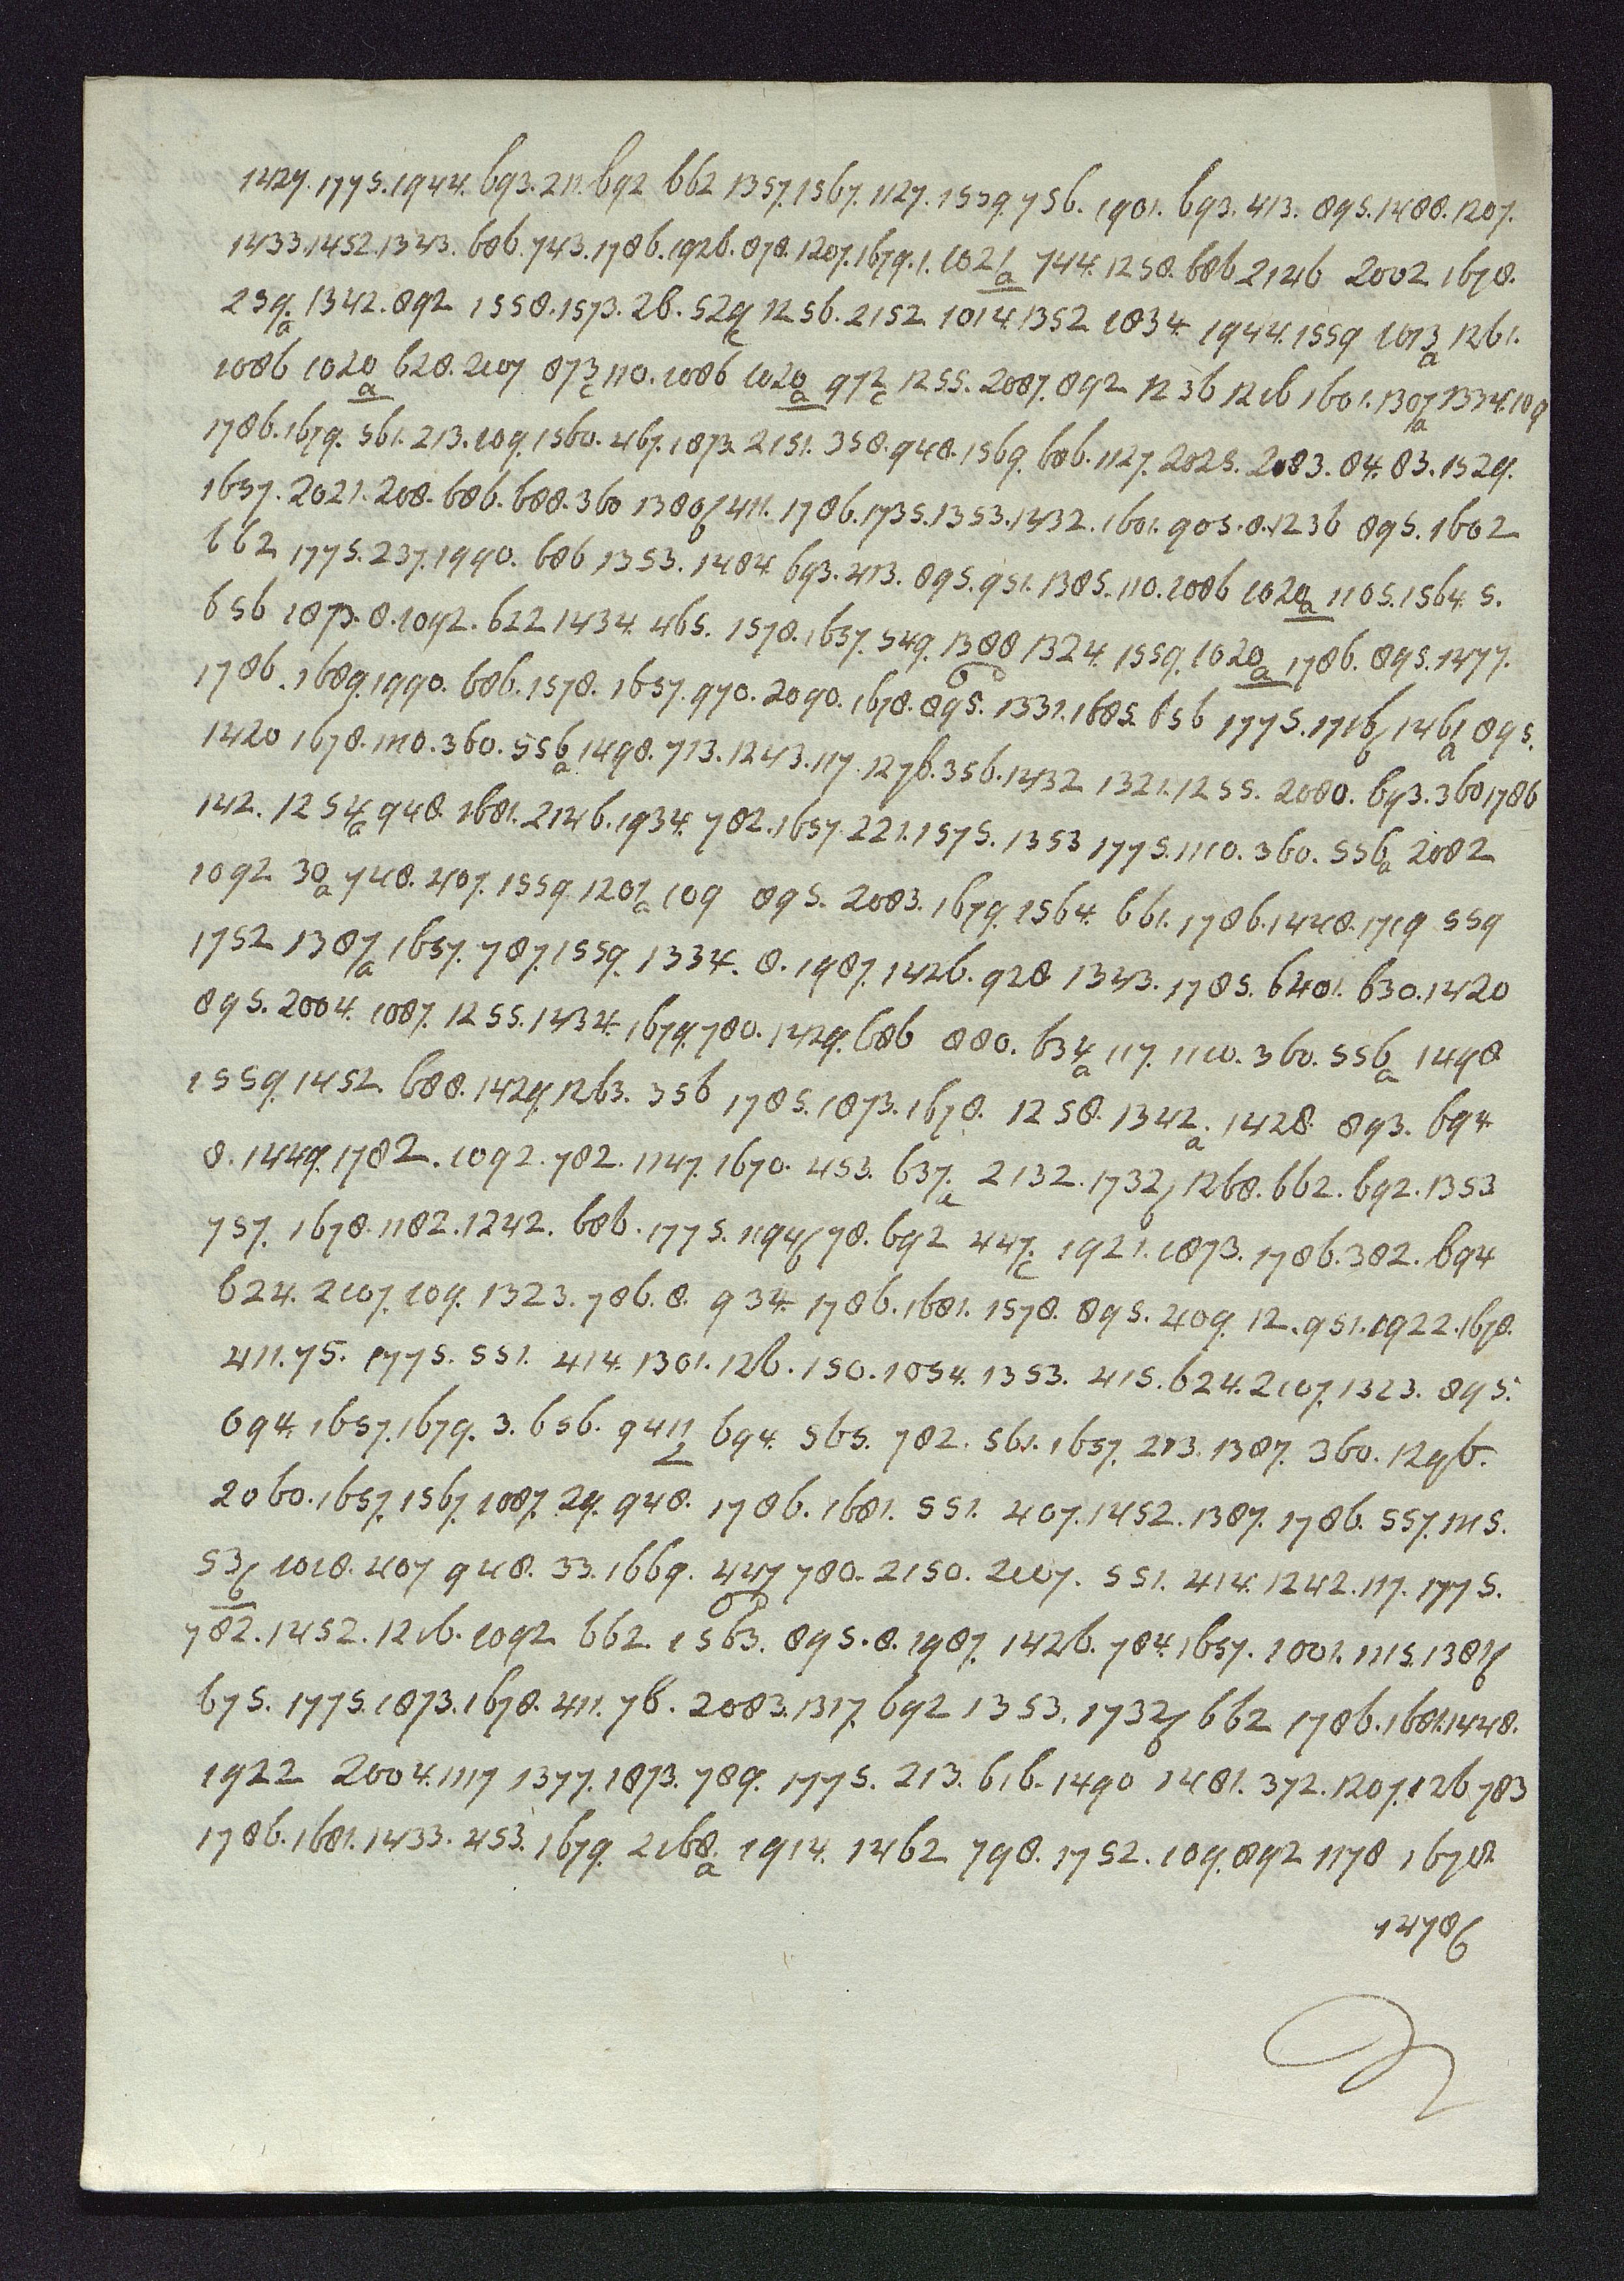 1427. 1775. 1944. 693. 211. 692 662 1357. 1567. 1127. 1559. 756. 1901. 693. 413. 895. 1488. 1207.
1433. 1452. 1343. 686. 743. 1786. 1926. 878. 1207. 1679. 1. 1021a 744. 1258. 686. 2146 2002 1678.
239.a 1342. 892 1558. 1573. 28. 529c 1256. 2152 1014. 1352 1834. 1944. 1559 1073a 1261.
1086 1020a 628. 2107 873c 110. 1086 1020a 972c 1255. 2087. 892 1236 1216 1601. 1307a 1334. 109
1786. 1679. 561. 213. 109. 1560. 467. 1873. 2151. 358. 948. 1569. 686. 1127. 2025. 2083. 84. 83. 1529.
1657. 2021. 208. 686. 688. 360 1380b 411. 1786. 1735. 1353. 1432. 1601. 905. 8. 1236 895. 1602
662 1775. 237. 1990. 686 1353. 1484. 693. 413. 895. 951. 1385. 110. 1086 1020a 1105. 1564. 5.
656 1873. 8. 1092. 622 1434. 465. 1578. 1657. 549. 1388 1324. 1559. 1020a 1786. 895. 1477.
1786. 1689. 1990. 686. 1578. 1657. 970. 2090. 1678. 895. 1331. 1685. 656 1775. 1716b 1461a 895.
1420 1678. 1110. 360. 556a 1498. 713. 1243. 117. 1276. 356. 1432 1321. 1255. 2080. 693. 360 1786
142. 1254a 948. 1681. 2146. 1934. 782. 1657. 221. 1575. 1353 1775. 1110. 360. 556a 2082
1092 30a 748. 407. 1559. 1207a 109 895. 2083. 1679. 1564. 661. 1786. 1448. 1719 559
1752 1387a 1657. 787. 1559. 1334. 8. 1987. 1426. 928 1343. 1785. 6401. 630. 1420
895. 2004. 1087. 1255. 1434. 1679. 780. 1429. 686 880. 634a 117. 1110. 360. 556a 1498
1559. 1452. 688. 1429. 1263. 356 1785. 1873. 1678. 1258. 1342a. 1428. 893. 694
8. 1449. 1782. 1092. 782. 1147. 1670. 453. 637.a 2132. 1732b 1268. 662. 692. 1353
757. 1678. 1182. 1242. 686. 1775. 1194b 78. 692 447.c 1921. 1873. 1786. 382. 694
624. 2107. 109. 1323. 786. 8. 934. 1786. 1681. 1578. 895. 409. 12. 951. 1922. 1678.
411. 75. 1775. 551. 414. 1301. 126. 150. 1054. 1353. 415. 624. 2107. 1323. 895.
694. 1657. 1679. 3. 656. 9411 694. 565. 782. 561. 1657. 213. 1387. 360. 1296.
2060. 1657. 1567. 1087. 29. 948. 1786. 1681. 551. 407. 1452. 1387. 1786. 557. 1115.
53b 1018. 407 948. 33. 1669. 447 780. 2150. 2107. 551. 414. 1242. 117. 1775.
782. 1452. 1216. 1092 662. 1563. 895. 8. 1987. 1426. 784. 1657. 1001. 1115. 1381b
675. 1775. 1873. 1678. 411. 76. 2083. 1317. 692 1353. 1732b 662 1786. 1681. 1448.
1922 2004. 1117 1377. 1873. 789. 1775. 213. 616. 1490 1481. 372. 1207. 126. 783
1786. 1681. 1433. 453. 1679. 2168a. 1914. 1462 798. 1752. 109. 892 1178 1678.
1478b